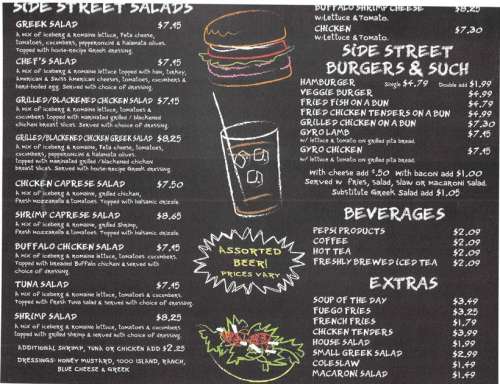 SIDE STREET SALADS
GREEK SALAD $7.95
A mix of iceberg & romaine lettuce, Feta cheese,
tomatoes, cucumbers, pepperoncini & kalamata olives.
Topped with house-recipe Greek dressing.
CHEF'S SALAD $7.95
A mix of iceberg & romaine lettuce topped with ham, turkey,
American & Swiss American cheeses, tomatoes, cucumbers &
hard-boiled egg. Served with choice of dressing.
GRILLED/BLACKENED CHICKEN SALAD $7.95
A mix of iceberg & romaine lettuce, tomatoes &
cucumbers topped with marinated grilled / blackened
chicken breast slices. Served with choice of dressing.
GRILLED/BLACKENED CHICKEN GREEK SALAD $8.25
A mix of iceberg & romaine, Feta cheese, tomatoes,
cucumbers, pepperoncini & kalamata olives.
Topped with marinated grilled / blackened chicken
breast slices. Served with house-recipe Greek dressing.
CHICKEN CAPRESE SALAD $7.50
A mix of iceberg & romaine, grilled chicken,
Fresh mozzarella & tomatoes. Topped with balsamic drizzle.
SHRIMP CAPRESE SALAD $8.65
A mix of iceberg & romaine, grilled shrimp,
Fresh mozzarella & tomatoes. Topped with balsamic drizzle.
BUFFALO CHICKEN SALAD $7.95
A mix of iceberg & romaine lettuce, tomatoes cucumbers.
Topped with breaded Buffalo chicken & served with
choice of dressing.
TUNA SALAD $7.95
A mix of iceberg & romaine lettuce, tomatoes & cucumbers
Topped with fresh tuna salad & served with choice of dressing.
SHRIMP SALAD $8.25
A mix of iceberg & romaine lettuce, tomatoes & cucumbers
topped with grilled shrimp & served with choice of dressing.
ADDITIONAL SHRIMP, TUNA OR CHICKEN ADD $2.25
DRESSINGS: HONEY MUSTARD, 1000 ISLAND, RANCH,
BLUE CHEESE & GREEK
ASSORTED
BEER!
PRICES VARY
BUFFALO SHRIMP CHEESE $8.25
w-Lettuce & Tomato.
CHICKEN $7.30
w-Lettuce & Tomato.
SIDE STREET
BURGERS & SUCH
HAMBURGER Single $4.79 Double add $1.99
VEGGIE BURGER $4.99
FRIED FISH ON A BUN $4.79
FRIED CHICKEN TENDERS ON A BUN $4.99
GRILLED CHICKEN ON A BUN $7.30
GYRO LAMB $7.95
w/ lettuce & tomato on grilled pita bread.
GYRO CHICKEN $7.95
w/ lettuce & tomato on grilled pita bread.
With cheese add $.50 With bacon add $1.00
Served w/ fries, salad, slaw or macaroni salad.
Substitute Greek Salad add $1.05
BEVERAGES
PEPSI PRODUCTS $2.09
COFFEE $2.09
HOT TEA $2.09
FRESHLY BREWED ICED TEA $2.09
EXTRAS
SOUP OF THE DAY $3.49
FUEGO FRIES $3.25
FRENCH FRIES $1.79
CHICKEN TENDERS $3.99
HOUSE SALAD $1.99
SMALL GREEK SALAD $2.99
COLESLAW $1.49
MACARONI SALAD $1.49